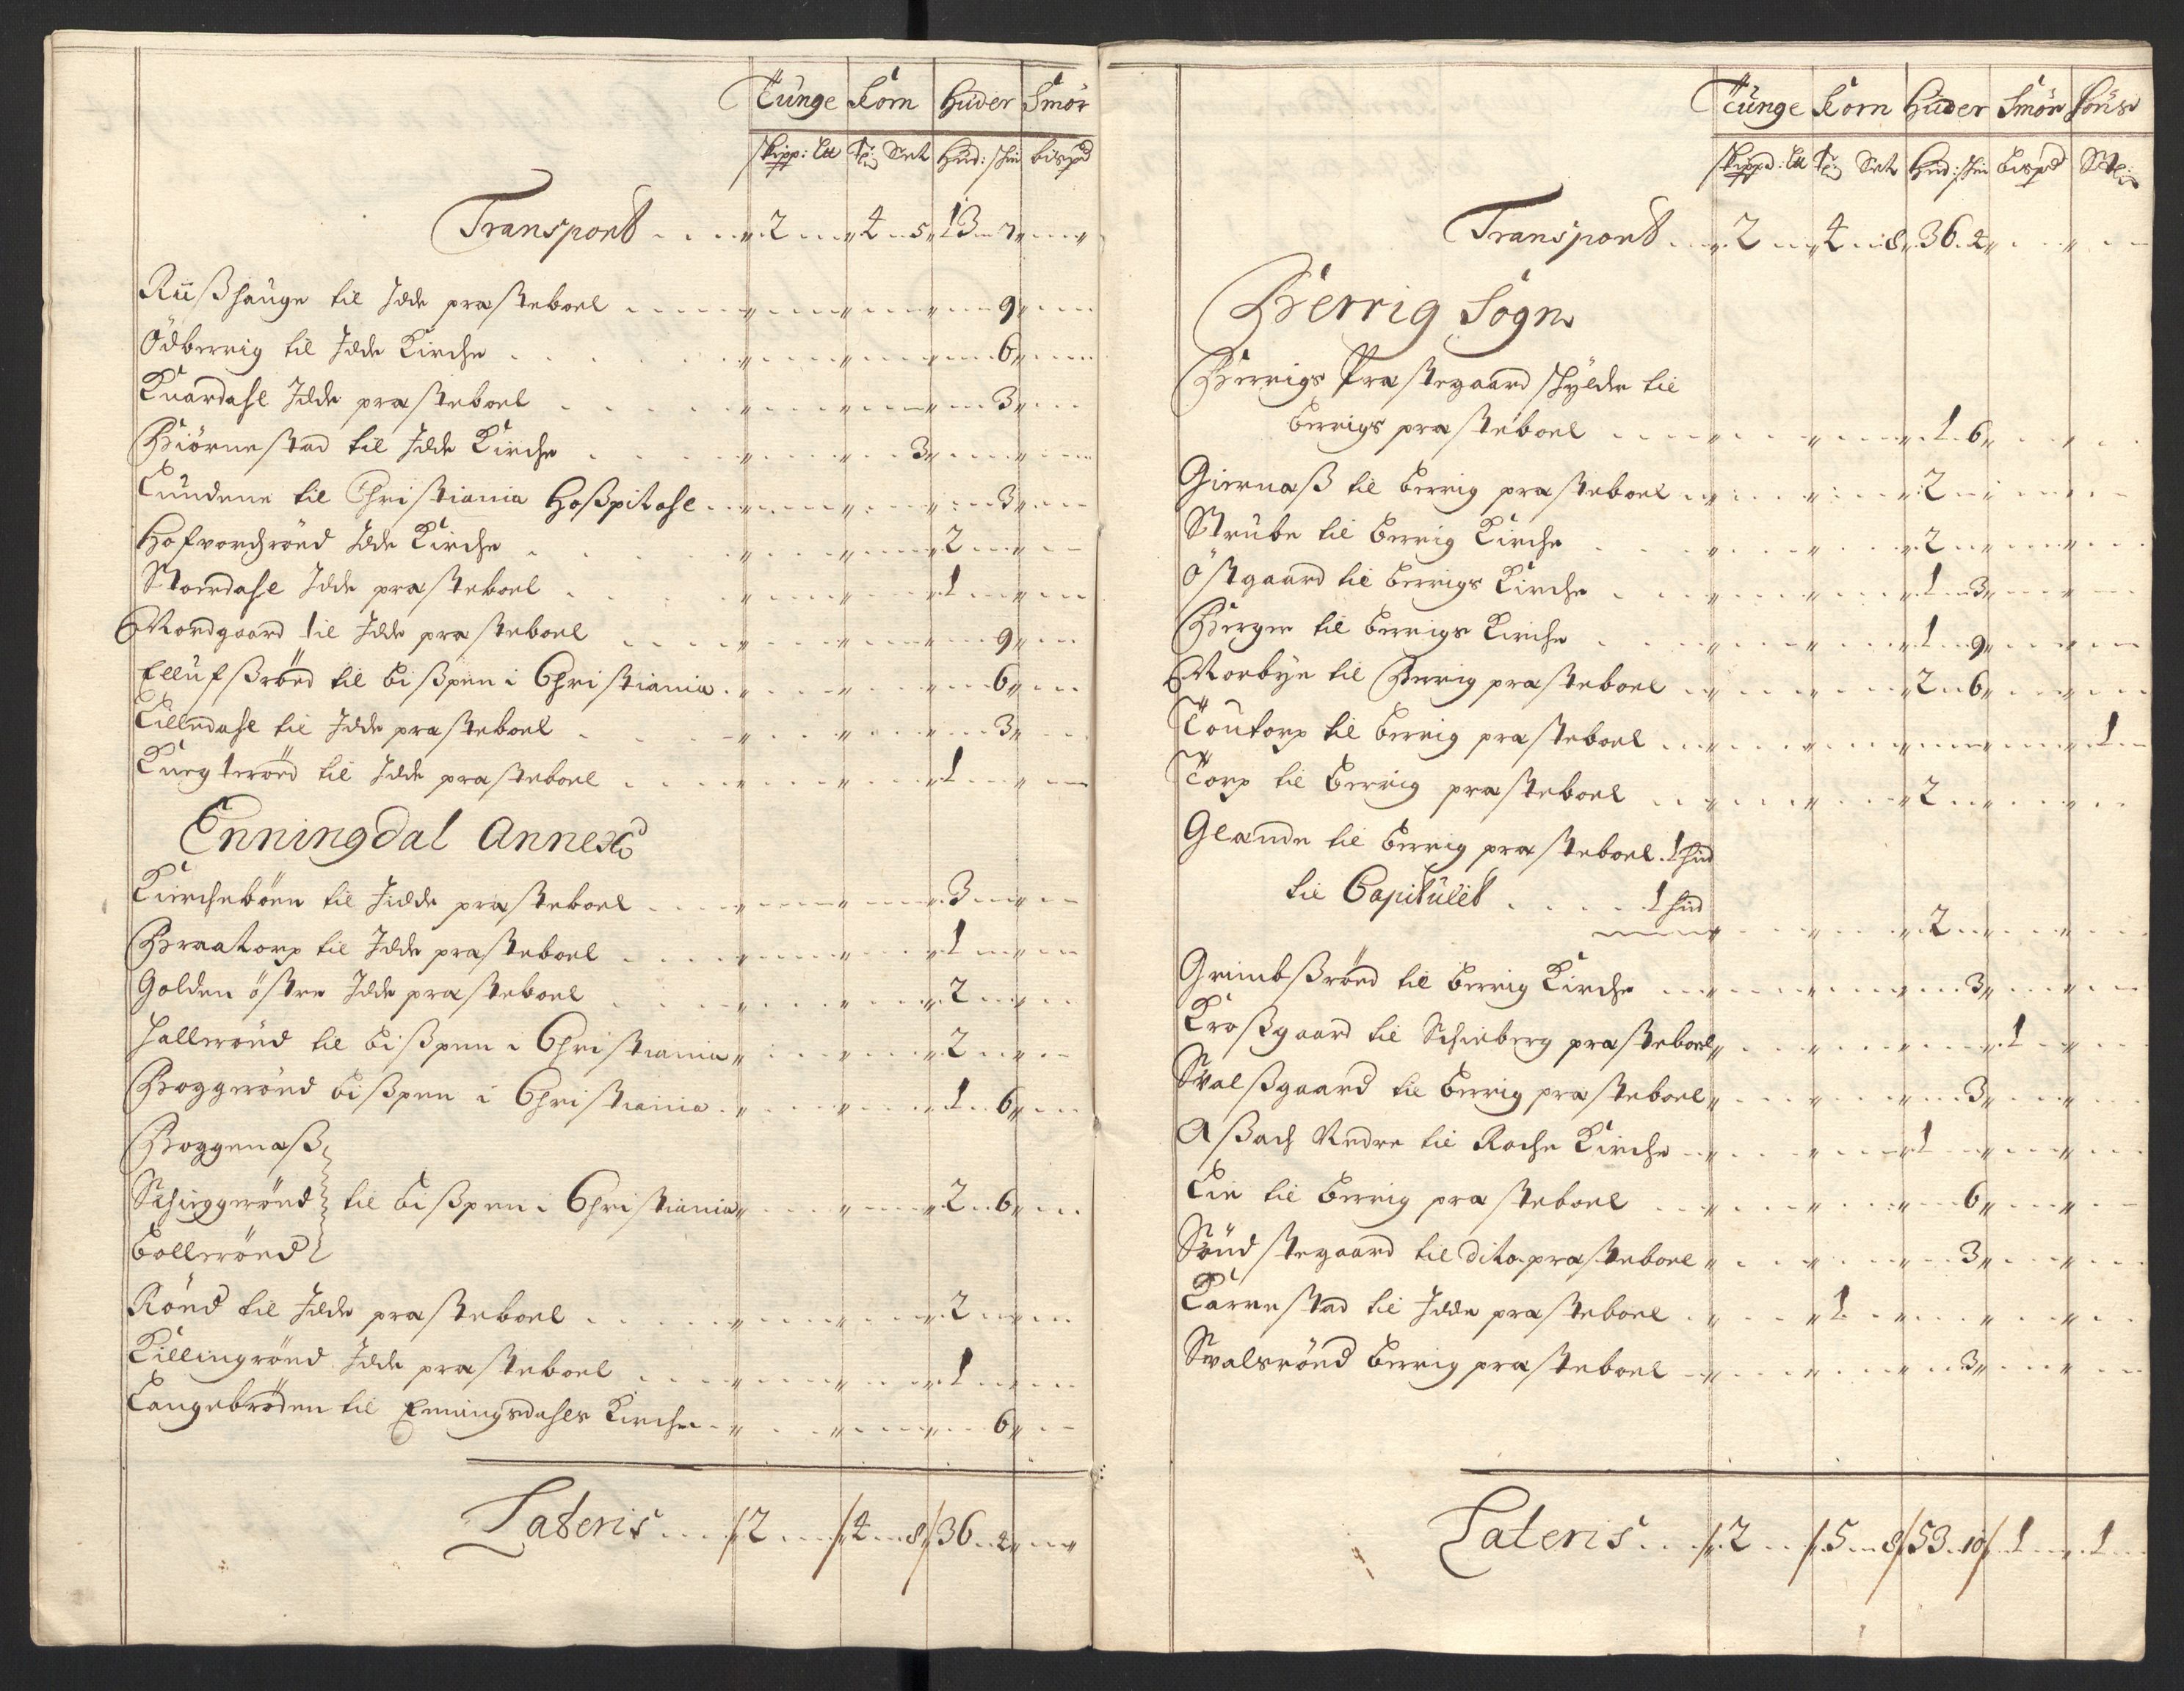 Tunge Korn Huder Smör
skipp: Ltt Tr: Set Hud: skin bispd
Transport 2 4 5 13 7
Riißhauge til Idde præsteboel 9
Ödberrig til Idde Kirche 6
Kuardahl Idde præsteboel 3
Biörnestad til Idde Kirche 3
Lundene til Christiania Hoßpitahl 3
Hofvordrönd Idde Kirche 2
Stordahl Idde præsteboel 1
Nordgaard til Idde præsteboel 9
Ellufßrönd til bißpen i Christiania 6
Lilledahl til Idde præsteboel 3
Knegterönd til Idde præsteboel 1
Enningdal Annex
Kircheböen til Jidde præsteboel 3
Braatorp til Idde præsteboel 1
Holden östre Idde præsteboel 2
Hallerönd til bißpen i Christiania 2
Boggerönd bißpen i Christiania 1 6
Boggenæß
Schiggerönd til bißpen i Christiania 2 6
bollerönd
Rönd til Idde præsteboel 2
Killingrönd Idde præsteboel 1
Langebröden til Enningsdahls Kirche 6
Lateris 2 4 8 36 4
Tunge Korn Huder Smör
skippd: Ltt Set Hud: skin bispd
Transport 2 4 8 36 4
Berrig Sogn
Berrigs Præstegaard skylder til
berrigs præsteboel 1 6
Giernæß til berrig præsteboel 2
Strube til berrig Kirche 2
Östgaard til berrigs Kirche 1 3
Berger til berrigs Kirche 1 9
Norbye til Berrig præsteboel 2 6
Toutorp til berrig præsteboel 1
Torp til berrig præsteboel 2
Glande til berrig præsteboel 1 hud
til Capitulet 1 hud
2
Grimbßrönd til berrig Kirche 3
Kroßgaard til Schieberg præsteboel 1
Svalßgaard til berrig præsteboel 3
Aßach Nedre til Rache Kirche 1
Lie til berrig præsteboel 6
Söndstegaard til dito præsteboel 3
Karrestad til Idde præsteboel 1
Svalerönd berrig præsteboel 3
Lateris 2 5 8 53 10 1 1